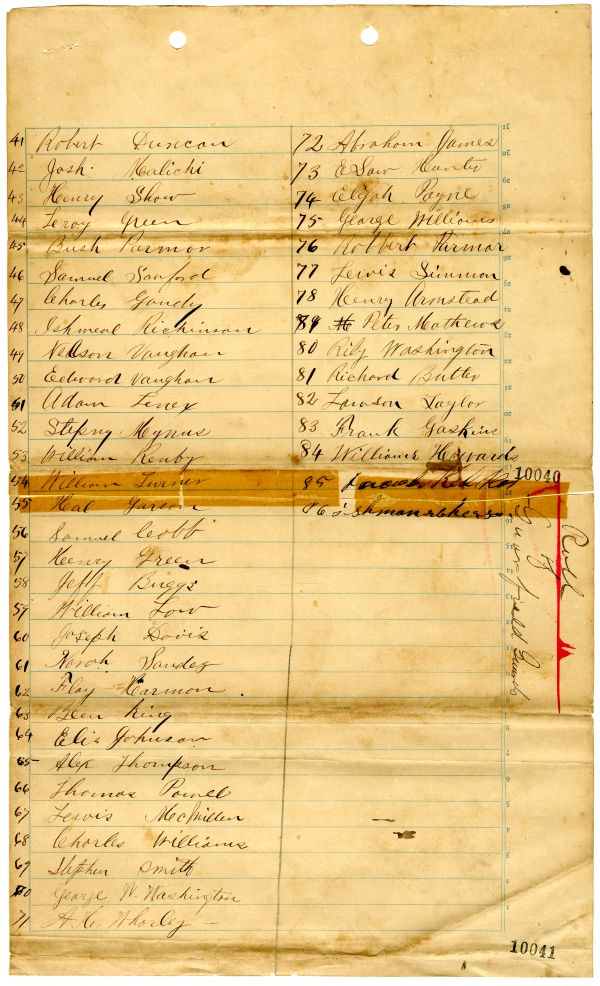 41 Robert Duncan
42 Josh. Malichi
43 Henry Show
44 Leroy Green
45 Bush Parmor
46 Samuel Sanford
47 Charles Goudy
48 Ishmeal Richinson
49 Nelson Vaughan
50 Edword Vaughan
51 Adam Lenex
52 Stepny Mynus
53 William Kenby
54 William Turner
55 Hal Garson
56 Samuel Cobb
57 Henry Green
58 Jeff Buggs
59 William Low
60 Joseph Davis
61 Noroh Sandez
62 Floy Harmon
63 Been King
64 Elis Johnson
65 Alex Thompson
66 Thomas Powel
67 Lewis McMillen
68 Charles Williams
69 Stephen Smith
70 George W. Washington
71 A. C. Whorley
72 Abraham James
73 E Saw Hunter
74 Elijah Payne
75 George Williams
76 Robbert Parmor
77 Lewis Simmon
78 Henry Armstead
79 Peter Mathews
80 Rily Washington
81 Richard Butler
82 Lawson Taylor
83 Frank Gaskins
84 Williams Howards
85 Jacob
86
10040
Roll
of
Garfield Guards
10041